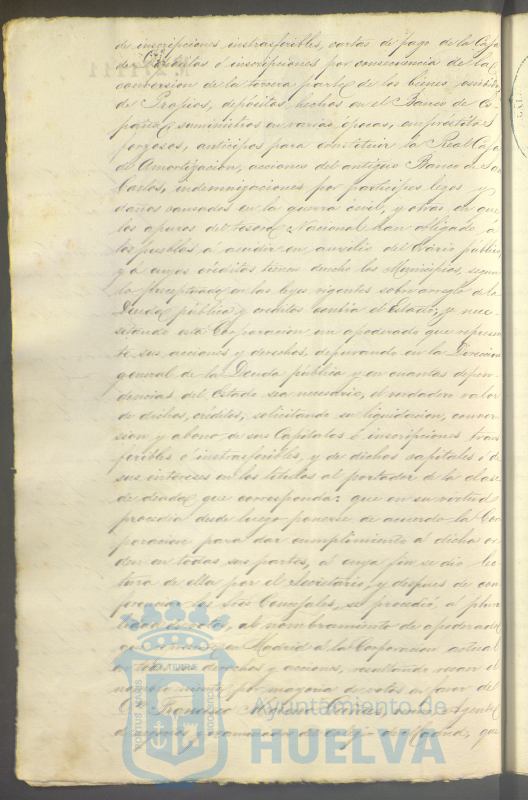 de inscripciones instrasferibles, cartas de pago de la Caja
de Depositos é inscripciones por consecuencia de la
conversion de la tercera parte de los bienes
de Propios, depósitos hechos en el Banco de Es-
paña, suministros en varias épocas, empréstitos
forzosos, anticipos para constituir la Real Caja
de Amortizacion, acciones del antiguo Banco de San
Carlos, indemnizaciones por participes legos y
daños causados en la guerra civil, y otros en que
los apuros del Tesoro Nacional han obligado á
los pueblos á acudir en auxilio del Erario público
y á cuyos créditos tienen derecho los Municipios, segun
lo preceptuado en las leyes vigentes sobre arreglo de la
Deuda pública y créditos contra el Estado, y nece-
sitando esta Corporacion un apoderado que represen-
te sus acciones y derechos, depurando en la Direccion
general de la Deuda pública y en cuantas depen-
dencias del Estado sea necesario, el verdadero valor
de dichos créditos, solicitando su liquidacion, conver-
sion y abono de sus Capitales é inscripciones tras-
feribles é instrasferibles, y de dichos capitales é de
sus intereses en los títulos al portador de la clase
de deuda que corresponda: que en su virtud
procedia desde luego ponerse de acuerdo la Cor-
poracion para dar cumplimiento á dicha or-
den en todas sus partes, á cuyo fin se dio lec-
tura de ella por el Secretario, y despues de con-
los Sres Concejales, se procedió, á plura-
lidad de votos, al nombramiento de apoderado
que en Madrid á la Corporacion actual
derechos y acciones, resultando recaer el
por mayoria de votos en favor del
Francisco Moreno Agente
de negocios de colegio de Madrid, que
PORTUS MARIS ET TERRÆ CUSTODIA
Ayuntamiento de
HUELVA